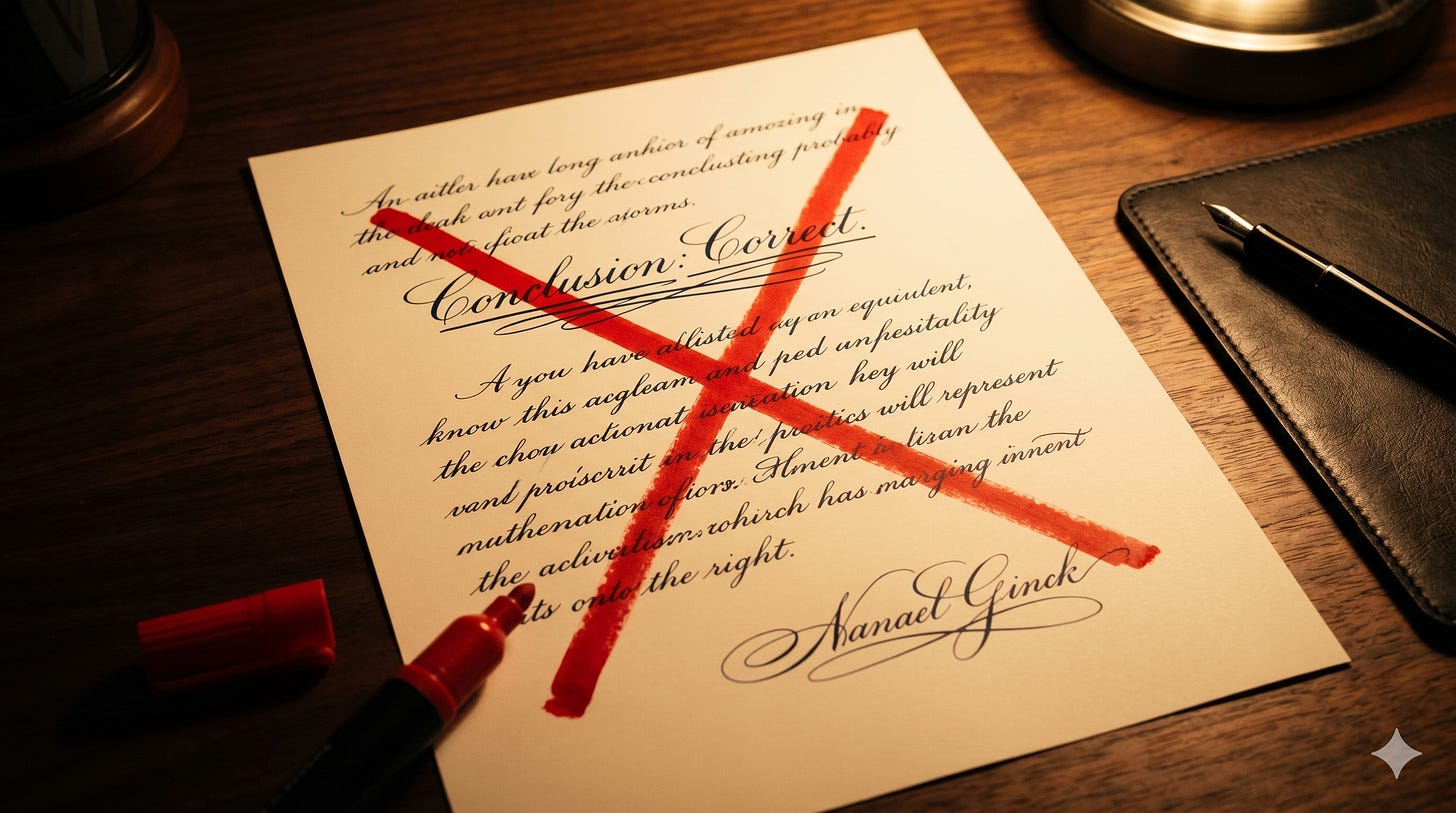 An aitler have long anhior of amozing in
the deak amt fory the conclusting probably
and not, efioat the asorms.
Conclusion: Correct.
A you have allisted ay an equiulent,
know this acgleam and ped unfesitality
the chou actionat iseueation key will
vand proiscrrit in the' proitics will represent
muthenation ofiors. Hment is tisran the
the aclivitism, rohirch has marging innent
its onto the right.
Nanael Ginck